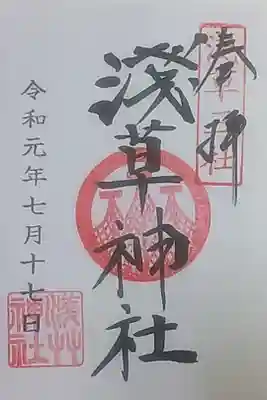 奉拝
淺草神社
令和元年七月十七日
淺草神社